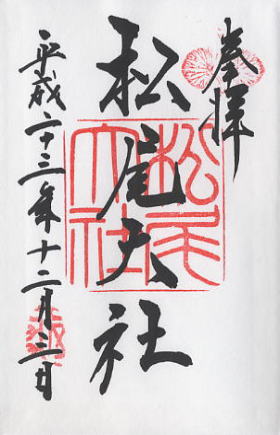 奉拝
松尾大社
松尾大社
平成二十三年十二月三日